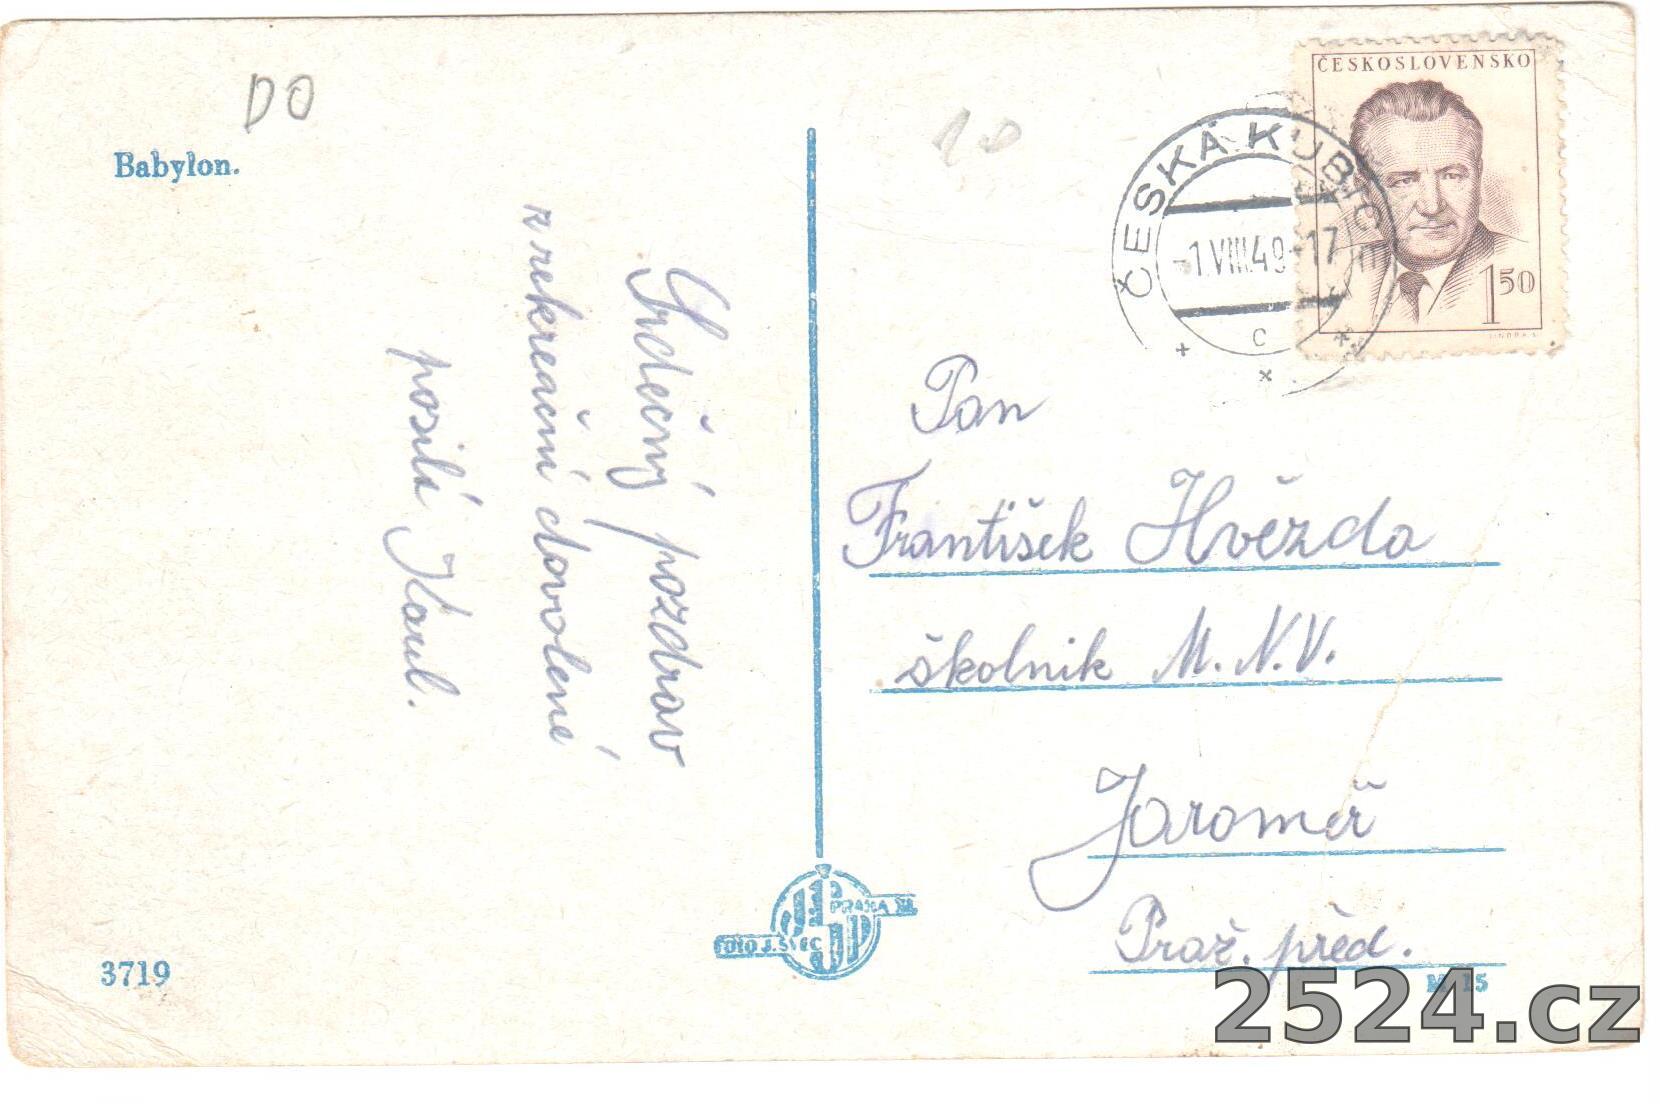 DO
Babylon.
Srdečný pozdrav
z rekreační dovolené
posílá Karel.
3719
10
ČESKÁ KUBICE
-1.VIII.49-17
C
ČESKOSLOVENSKO
1 50
Pan
František Hvězda
školník M.N.V.
Jaroměř
Praž. před.
FOTO J. ŠVEC
PRAHA XII.
M 15
2524.cz